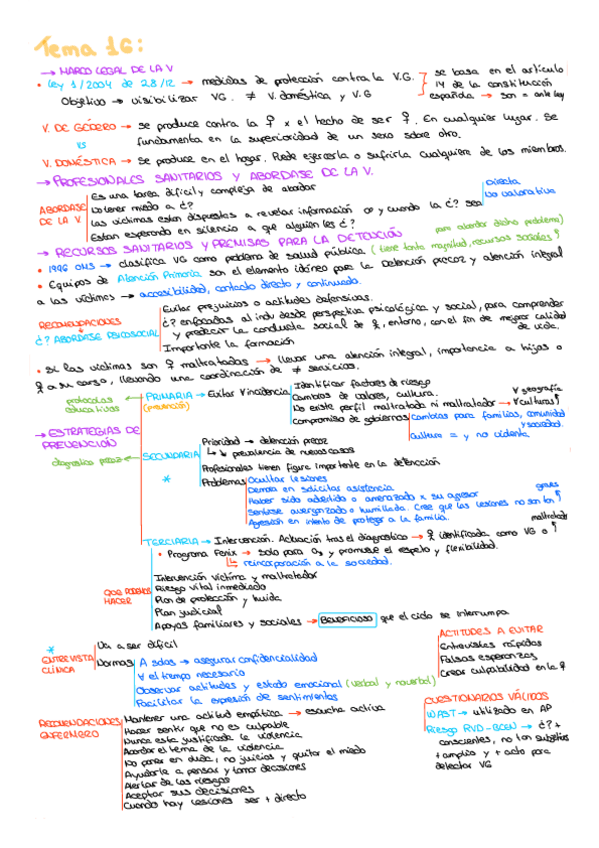 Tema 16:
→ MARCO LEGAL DE LA V
• Ley 1/2004 de 28/12 → medidas de protección contra la V.G. se basa en el artículo
Objetivo → visibilizar VG. ≠ V. doméstica y V.G 14 de la constitución
española → son = ante ley
V. DE GÉNERO → se produce contra la ♀ x el hecho de ser ♀. En cualquier lugar. Se
vs fundamenta en la superioridad de un sexo sobre otro.
V. DOMÉSTICA → Se produce en el hogar. Puede ejercerla o sufrirla cualquiera de los miembros.
→ PROFESIONALES SANITARIOS Y ABORDAJE DE LA V.
ABORDAJE DE LA V.
Es una tarea difícil y compleja de abordar
No tener miedo a ¿?
Las víctimas estan dispuestas a revelar información y cuando la ¿? sea
Directa
No valorativa
Estan esperando en silencio a que alguien les ¿?
→ RECURSOS SANITARIOS Y PREMISAS PARA LA DETECCIÓN
para abordar dicho problema)
• 1996 OMS → clasifica VG como problema de salud pública (tiene tanta magnitud, recursos sociales
• Equipos de Atención Primaria son el elemento idóneo para la Detención precoz y atención integral
a las víctimas → accesibilidad, contacto directo y continuado.
RECOMENDACIONES
¿? ABORDAJE PSICOSOCIAL
Evitar prejuicios o actitudes defensivas.
¿? enfocadas al indv desde perspectiva psicológica y social, para comprender
y predecir la conducta social de ♀, entorno, con el fin de mejorar calidad
de vida.
Importante la formación
• Si las víctimas son ♀ maltratadas → llevar una atención integral, importancia a hijos o
♀ a su cargo, llevando una coordinación de ≠ servicios.
→ ESTRATEGIAS DE PREVENCIÓN
protocolos educativos
PRIMARIA → Evitar ↑incidencia
(prevención)
Identificar factores de riesgo
Cambios de valores, cultura.
No existe perfil maltratada ni maltratador → ∀ geografía
∀ culturas
Compromiso de gobiernos
Cambios para familias, comunidad
y sociedad.
Cultura = y no violenta
diagnostico precoz
SECUNDARIA
Prioridad → detención precoz
↳ ↓ prevalencia de nuevos casos
Profesionales tienen figura importante en la detección
* Problemas
Ocultar lesiones
Demora en solicitar asistencia
Haber sido advertido o amenazado x su agresor
Sentirse avergonzado o humillada. Cree que las lesiones no son tan graves
Agresión en intento de proteger a la familia.
TERCIARIA → Intervención. Actuación tras el diagnostico → ♀ identificada como VG o maltratada
• Programa Fenix → solo para ♂s y promueve el respeto y flexibilidad.
↳ reincorporación a la sociedad.
QUE PODEMOS HACER
Intervención víctima y maltratador
Riesgo vital inmediato
Plan de protección y huida
Plan judicial
Apoyos familiares y sociales → BENEFICIOSO que el ciclo se interrumpa
*
ENTREVISTA CLÍNICA
Va a ser difícil
Normas
A solas → asegurar confidencialidad
∀ el tiempo necesario
Observar actitudes y estado emocional (verbal y no verbal)
Facilitar la expresión de sentimientos
ACTITUDES A EVITAR
Entrevistas rápidas
Falsas esperanzas
Crear culpabilidad en la ♀
RECOMENDACIONES ENFERMERO
Mantener una actitud empática → escucha activa
Hacer sentir que no es culpable
Nunca esta justificada la violencia
Abordar el tema de la violencia
No poner en duda, no juicios y quitar el miedo
Ayudarla a pensar y tomar decisiones
Alertar de los riesgos
Aceptar sus decisiones
Cuando hay lesiones ser + directo
CUESTIONARIOS VÁLIDOS
WAST → utilizado en AP
Riesgo RVD-BCN → ¿? +
conscientes, no tan subjetivos
+ amplio y + acto para
detectar VG